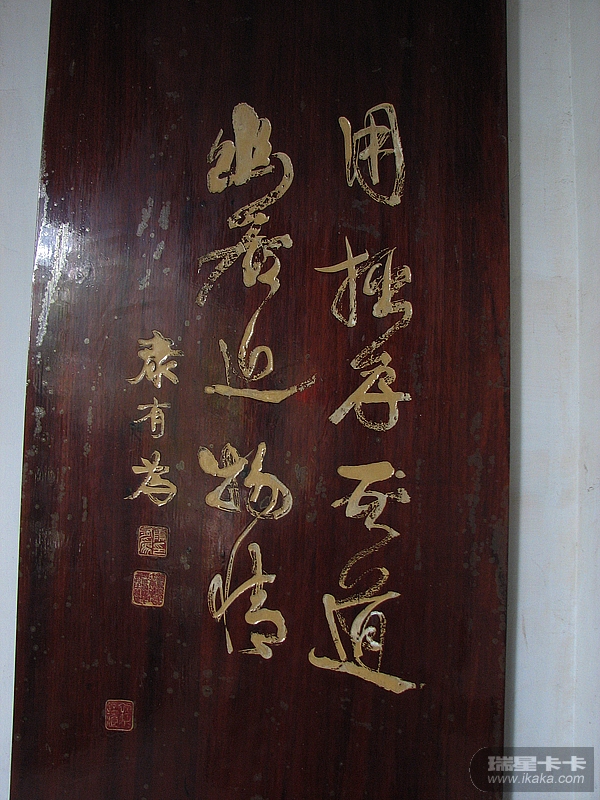 用拙存吾道
幽居近物情
康有为
瑞星卡卡
www.ikaka.com